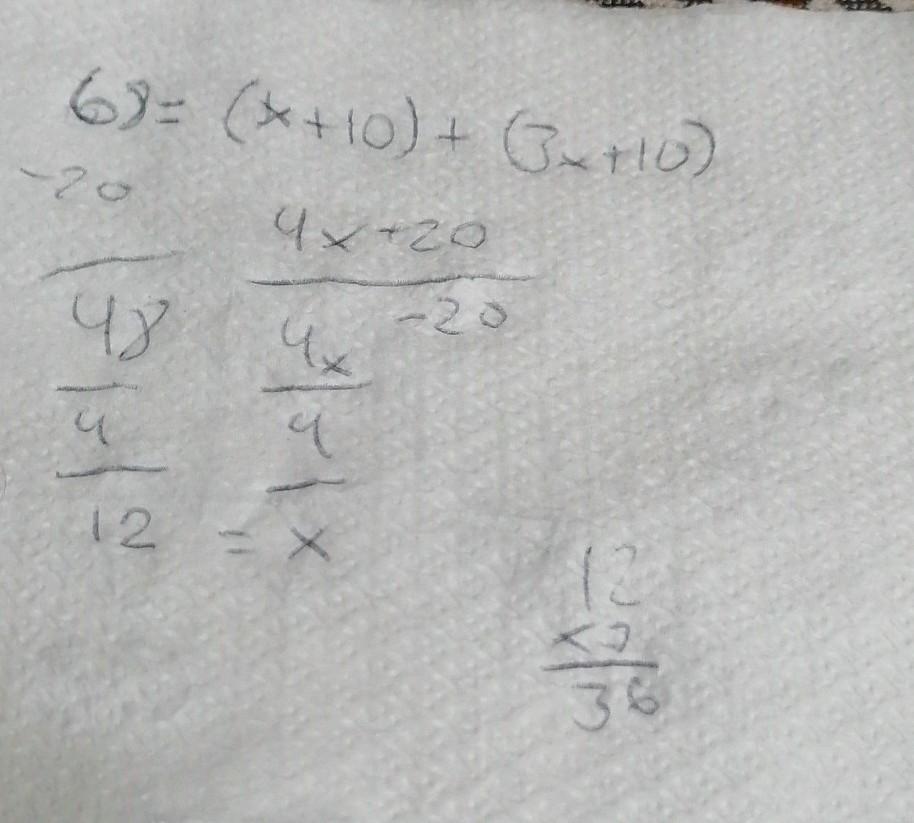 68= (x+10) + (3x+10)
-20
4x+20
-20
48 4x
4 4
12 = x
12
x3
36